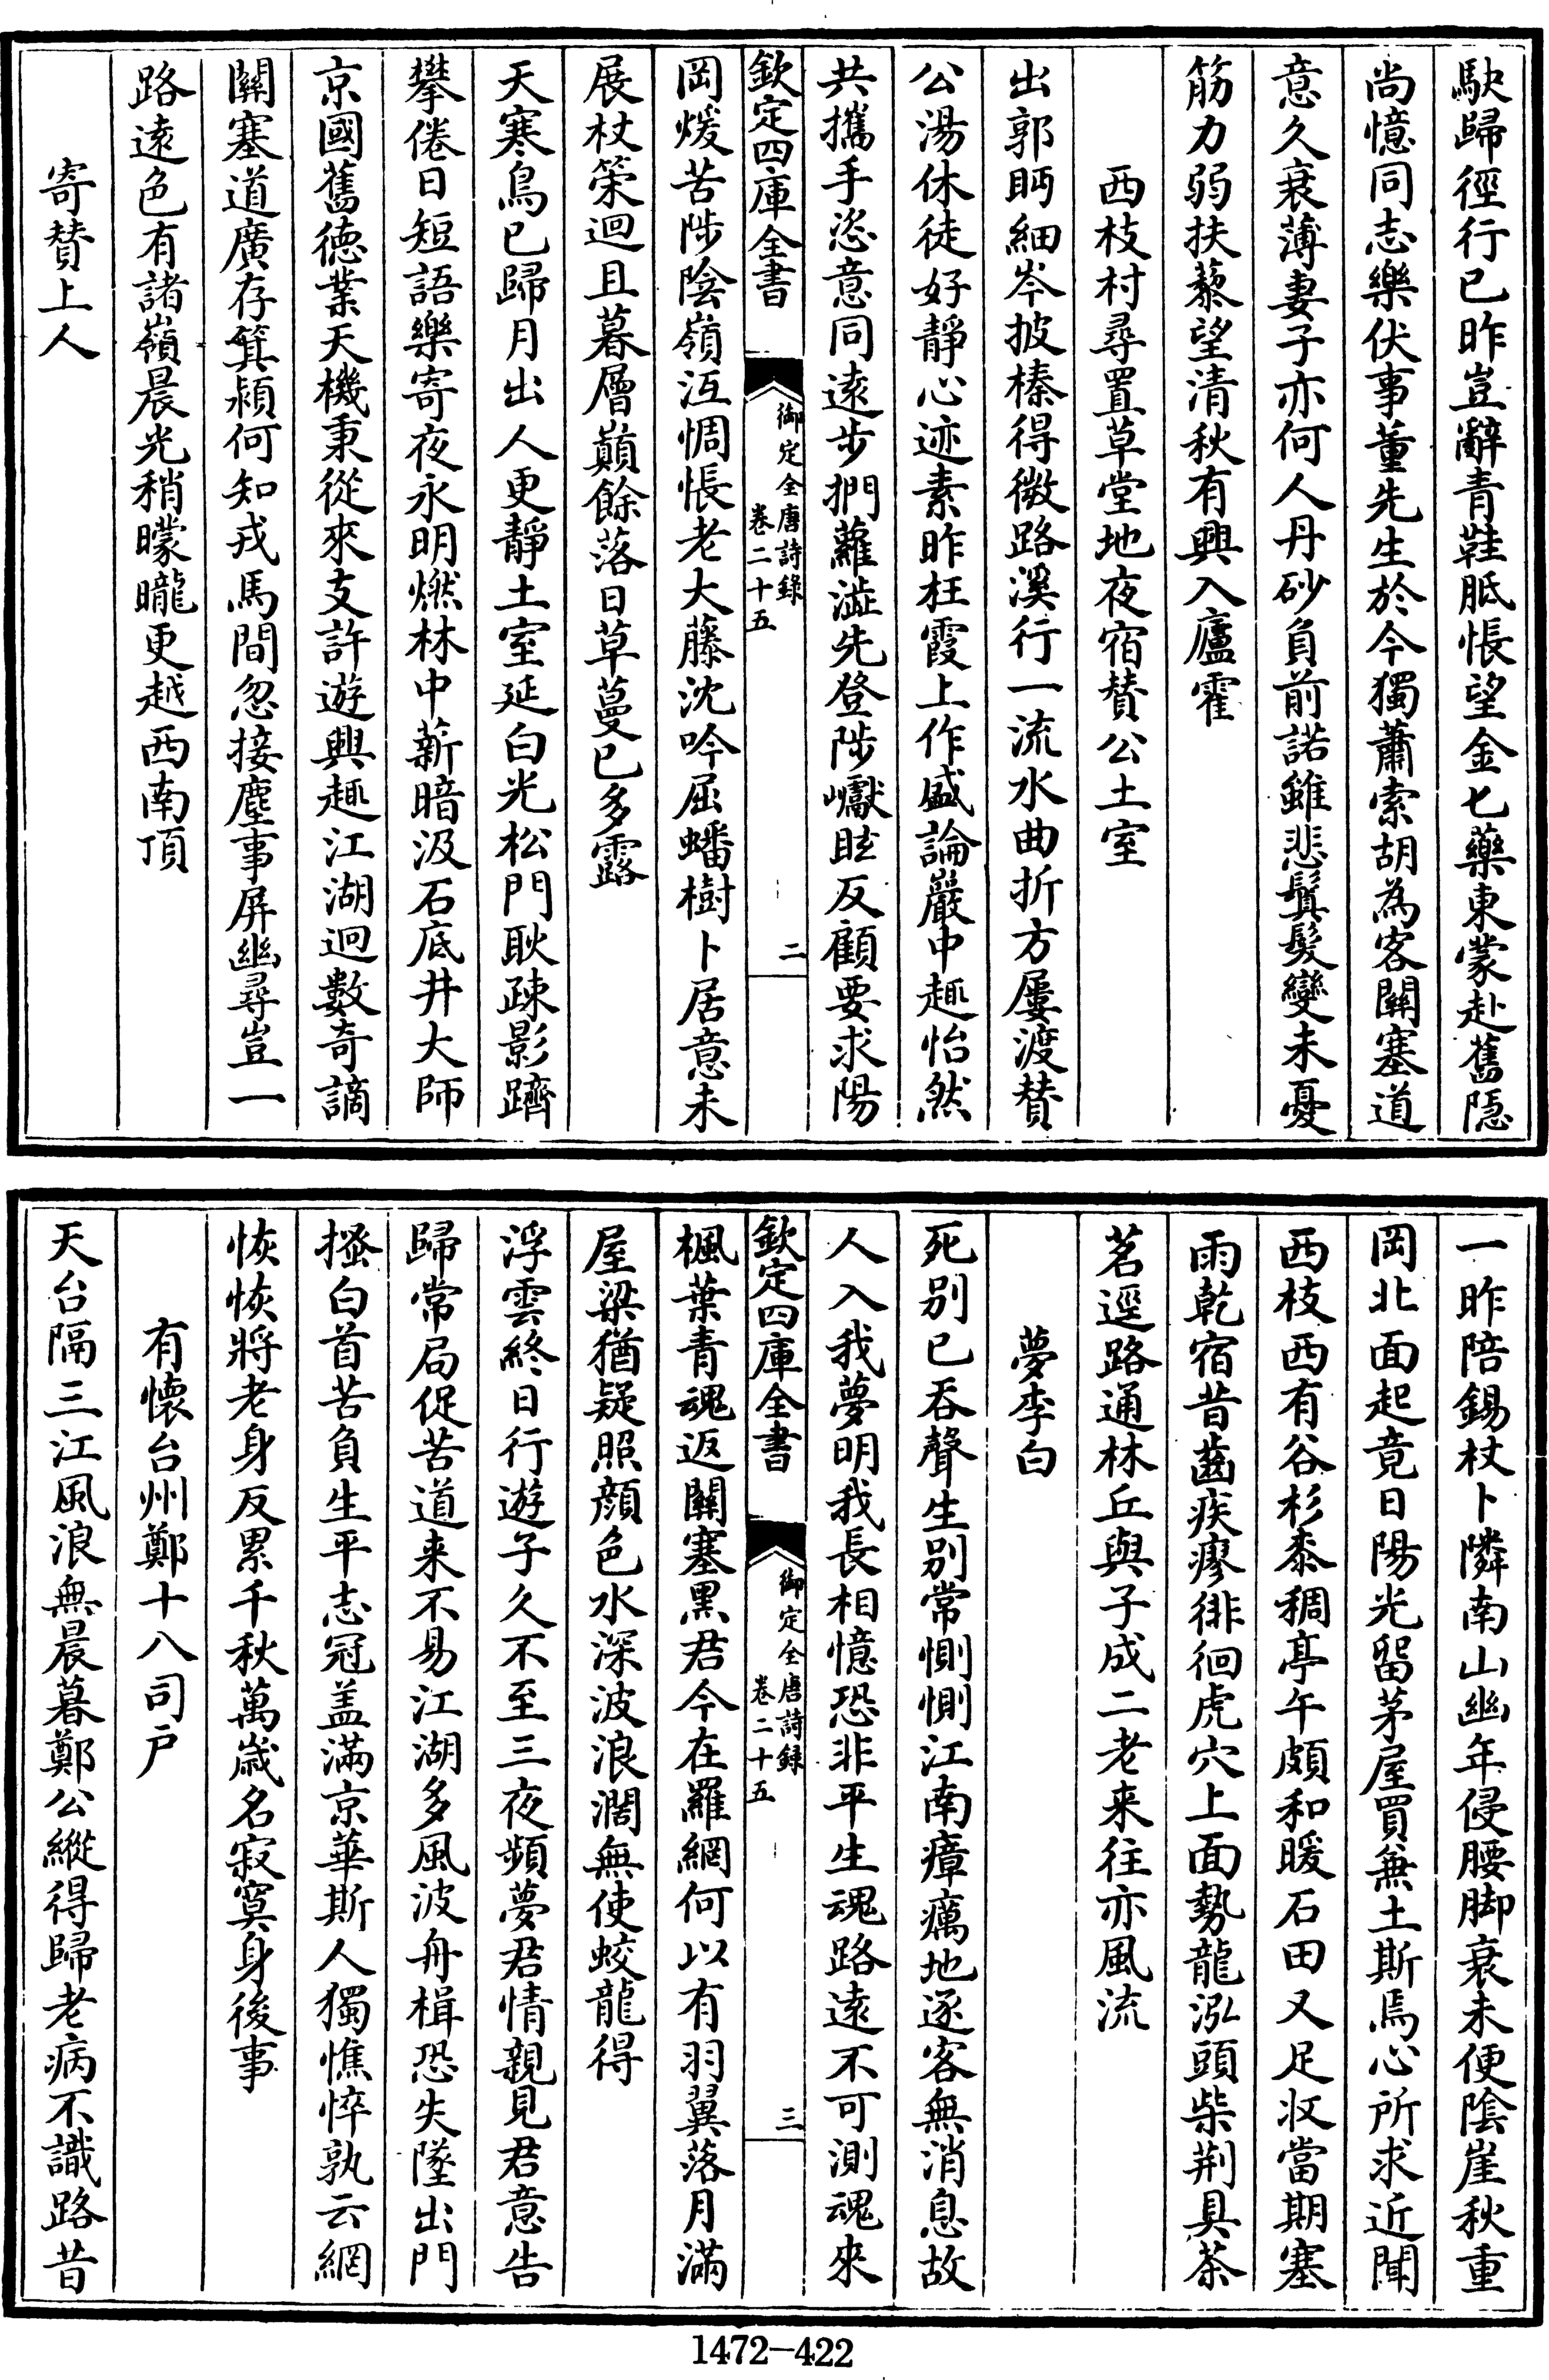 駃歸徑行已昨豈辭青鞋胝悵望金匕藥東蒙赴舊隠
尚憶同志樂伏事董先生於今獨蕭索胡為客關塞道
意久衰薄妻子亦何人丹砂負前諾雖悲鬒髮變未憂
筋力弱扶藜望清秋有興入廬霍
西枝村尋置草堂地夜宿賛公土室
出郭眄細岑披榛得微路溪行一流水曲折方屢渡賛
公湯休徒好靜心迹素昨枉霞上作盛論巖中趣怡然
共攜手恣意同逺步捫蘿澁先登陟巘眩反顧要求陽
欽定四庫全書
御定全唐詩録
卷二十五
二
岡煖苦陟陰嶺沍惆悵老大藤沈吟屈蟠樹卜居意未
展杖䇿迴且暮層巔餘落日草蔓已多露
天寒鳥已歸月出人更靜土室延白光松門耿疎影躋
攀倦日短語樂寄夜永明燃林中薪暗汲石底井大師
京國舊徳業天機秉從來支許遊興趣江湖迴數竒謫
關塞道廣存箕潁何知戎馬間忽接塵事屏幽尋豈一
路逺色有諸嶺晨光稍曚曨更越西南頂
寄賛上人
一昨陪錫杖卜隣南山幽年侵腰脚衰未便陰崖秋重
岡北面起竟日陽光留茅屋買兼土斯焉心所求近聞
西枝西有谷杉桼稠亭午頗和暖石田又足収當期塞
雨乾宿昔齒疾瘳徘徊虎穴上面勢龍泓頭柴荆具茶
茗逕路通林丘與子成二老来往亦風流
夢李白
死别已吞聲生别常惻惻江南瘴癘地逐客無消息故
人入我夢明我長相憶恐非平生魂路逺不可測魂來
欽定四庫全書
御定全唐詩録
卷二十五
三
楓葉青魂返關塞黒君今在羅網何以有羽翼落月滿
屋梁猶疑照顔色水深波浪濶無使蛟龍得
浮雲終日行遊子久不至三夜頻夢君情親見君意告
歸常局促苦道来不易江湖多風波舟楫恐失墜出門
搔白首苦負生平志冠盖滿京華斯人獨憔悴孰云網
恢恢將老身反累千秋萬歳名寂寞身後事
有懷台州鄭十八司户
天台隔三江風浪無晨暮鄭公縱得歸老病不識路昔
1472-422